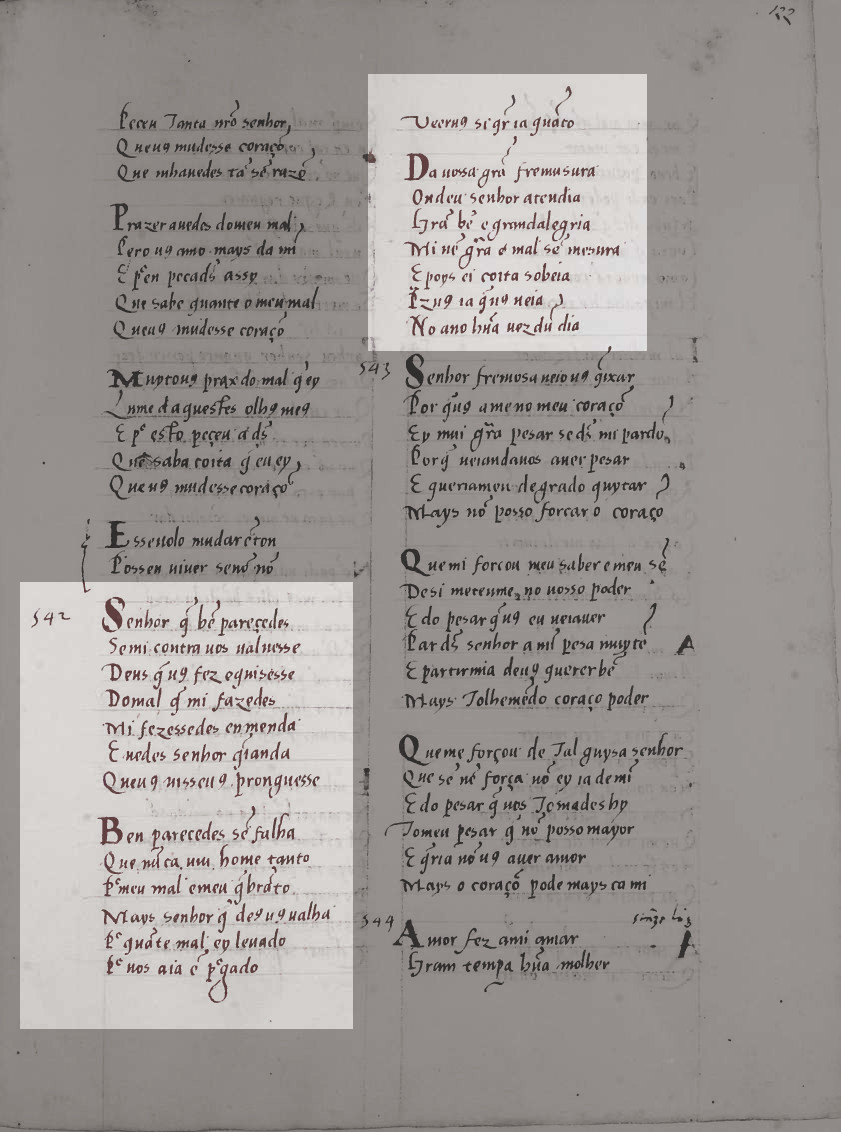 122
Peceu Tanta nr̃o senhor
Que uꝯ mudesse coraçõ
Que mhauedes tã sẽ razõ
Prazer auedes domeu mal
Pero uꝯ amo mays da mĩ
E pᵉen pecads̃ assy
Que sabe quante o meu mal
Queuꝯ mudesse coraçõ
Muytouꝯ praz do mal q̃ ey
Lume daquestes olhꝯ meꝯ
E pᵉ esto peçeu a ds̃
Que saba coita q̃ eu ey
Que uꝯ mudesse coraçõ
Esseuolo mudarẽton
Possen uiuer senõ nõ
542
Senhor q̃ bẽ pareçedes
Semi contra uos ualuesse
Deus q̃ uꝯ fez e quisesse
Domal q̃ mi fazedes
Mi fezessedes enmenda
E uedes senhor q̃ianda
Queuꝯ uisseuꝯ prouguesse
Ben parecedes sẽ falha
Que nũca uiu home tanto
Pᵉ meu mal e meu q̃brãto
Mays senhor q̃ deꝯ uꝯ ualha
Pᵉ quãte mal ey leuado
Pᵉ uos aia ẽ pᵉgado
Ueeruꝯ siq̃r ia quãto
Da uossa grã fremusura
Ondeu senhor atendia
Gram bẽ e grandalegria
Mi uẽ grã e mal sẽ mesura
E poys ei coita sobeia
Pzuꝯ ia q̃ uꝯ ueia
No ano hũa uez dũ dia
543
Senhor fremosa ueio uꝯ q̃ixar
Por q̃ uꝯ ame no meu coraçõ
Ey mui grã pesar se ds̃ mi pardõ
Porq̃ ueiandauos auer pesar
E queriamen de grado quytar
Mays nõ posso forcar o coraço
Que mi forcou meu saber e meu sẽ
Desi meteume no uosso poder
E do pesar q̃ uꝯ eu ueiauer
Par ds̃ senhor a mĩ pesa muytẽ
E partirmia deuꝯ querer bẽ
Mays Tolhemẽdo coraço poder
Que me forçou de Tal guysa senhor
Que sẽ nẽ força nõ ey ia de mĩ
E do pesar q̃ uos Tomades hy
Tomeu pesar q̃ nõ posso mayor
E q̃ria nõ uꝯ auer amor
Mays o coraçõ pode mays ca mi
544
Amor fez a mi amar
Gram tempa hũa molher